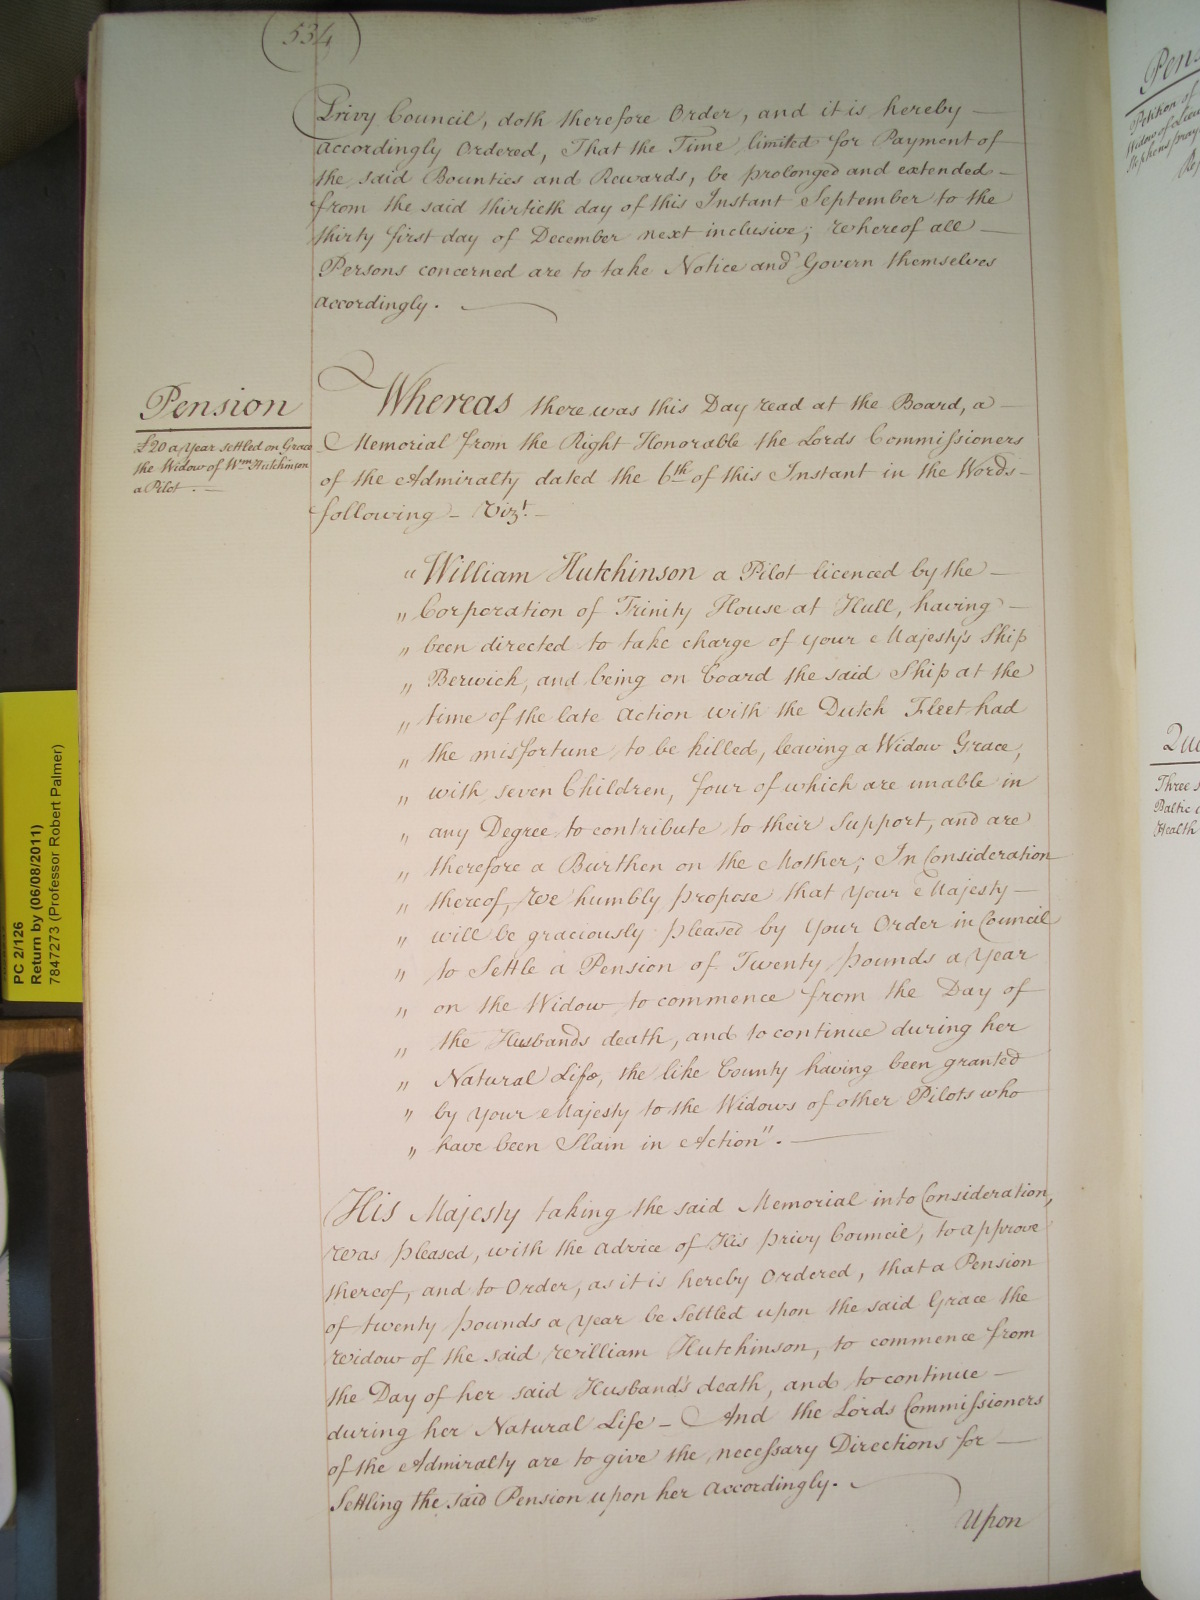 534
Privy Council, doth therefore Order, and it is hereby —
accordingly Ordered, That the Time limited for Payment of
the said Bounties and Rewards, be prolonged and extended —
from the said thirtieth day of this Instant September to the
thirty first day of December next inclusive; whereof all —
Persons concerned are to take Notice and Govern themselves
accordingly.
Pension
£20 a Year settled on Grace
the Widow of Wm Hutchinson
a Pilot. —
Whereas there was this Day read at the Board, a —
Memorial from the Right Honorable the Lords Commissioners
of the Admiralty dated the 6th of this Instant in the Words —
following — Vizt. —
"William Hutchinson a Pilot licenced by the —
" Corporation of Trinity House at Hull, having —
" been directed to take charge of your Majesty's Ship
" Berwick, and being on board the said Ship at the
" time of the late Action with the Dutch Fleet had
" the misfortune to be killed, leaving a Widow Grace,
" with seven Children, four of which are unable in
" any Degree to contribute to their Support, and are
" therefore a Burthen on the Mother; In Consideration
" thereof, We humbly propose that Your Majesty —
" will be graciously pleased by Your Order in Council
" to Settle a Pension of Twenty pounds a Year
" on the Widow to commence from the Day of
" the Husbands death, and to continue during her
" Natural Life, the like bounty having been granted
" by Your Majesty to the Widows of other Pilots who
" have been Slain in Action". —
His Majesty taking the said Memorial into Consideration,
was pleased, with the advice of His privy Council, to approve
thereof, and to Order, as it is hereby Ordered, that a Pension
of twenty pounds a Year be Settled upon the said Grace the
Widow of the said William Hutchinson, to commence from
the Day of her said Husband's death, and to continue —
during her Natural Life — And the Lords Commissioners
of the Admiralty are to give the necessary Directions for —
Settling the said Pension upon her accordingly.
Upon
PC 2/126
Return by (06/08/2011)
7847273 (Professor Robert Palmer)
Petition of
Three
Baltic
Health